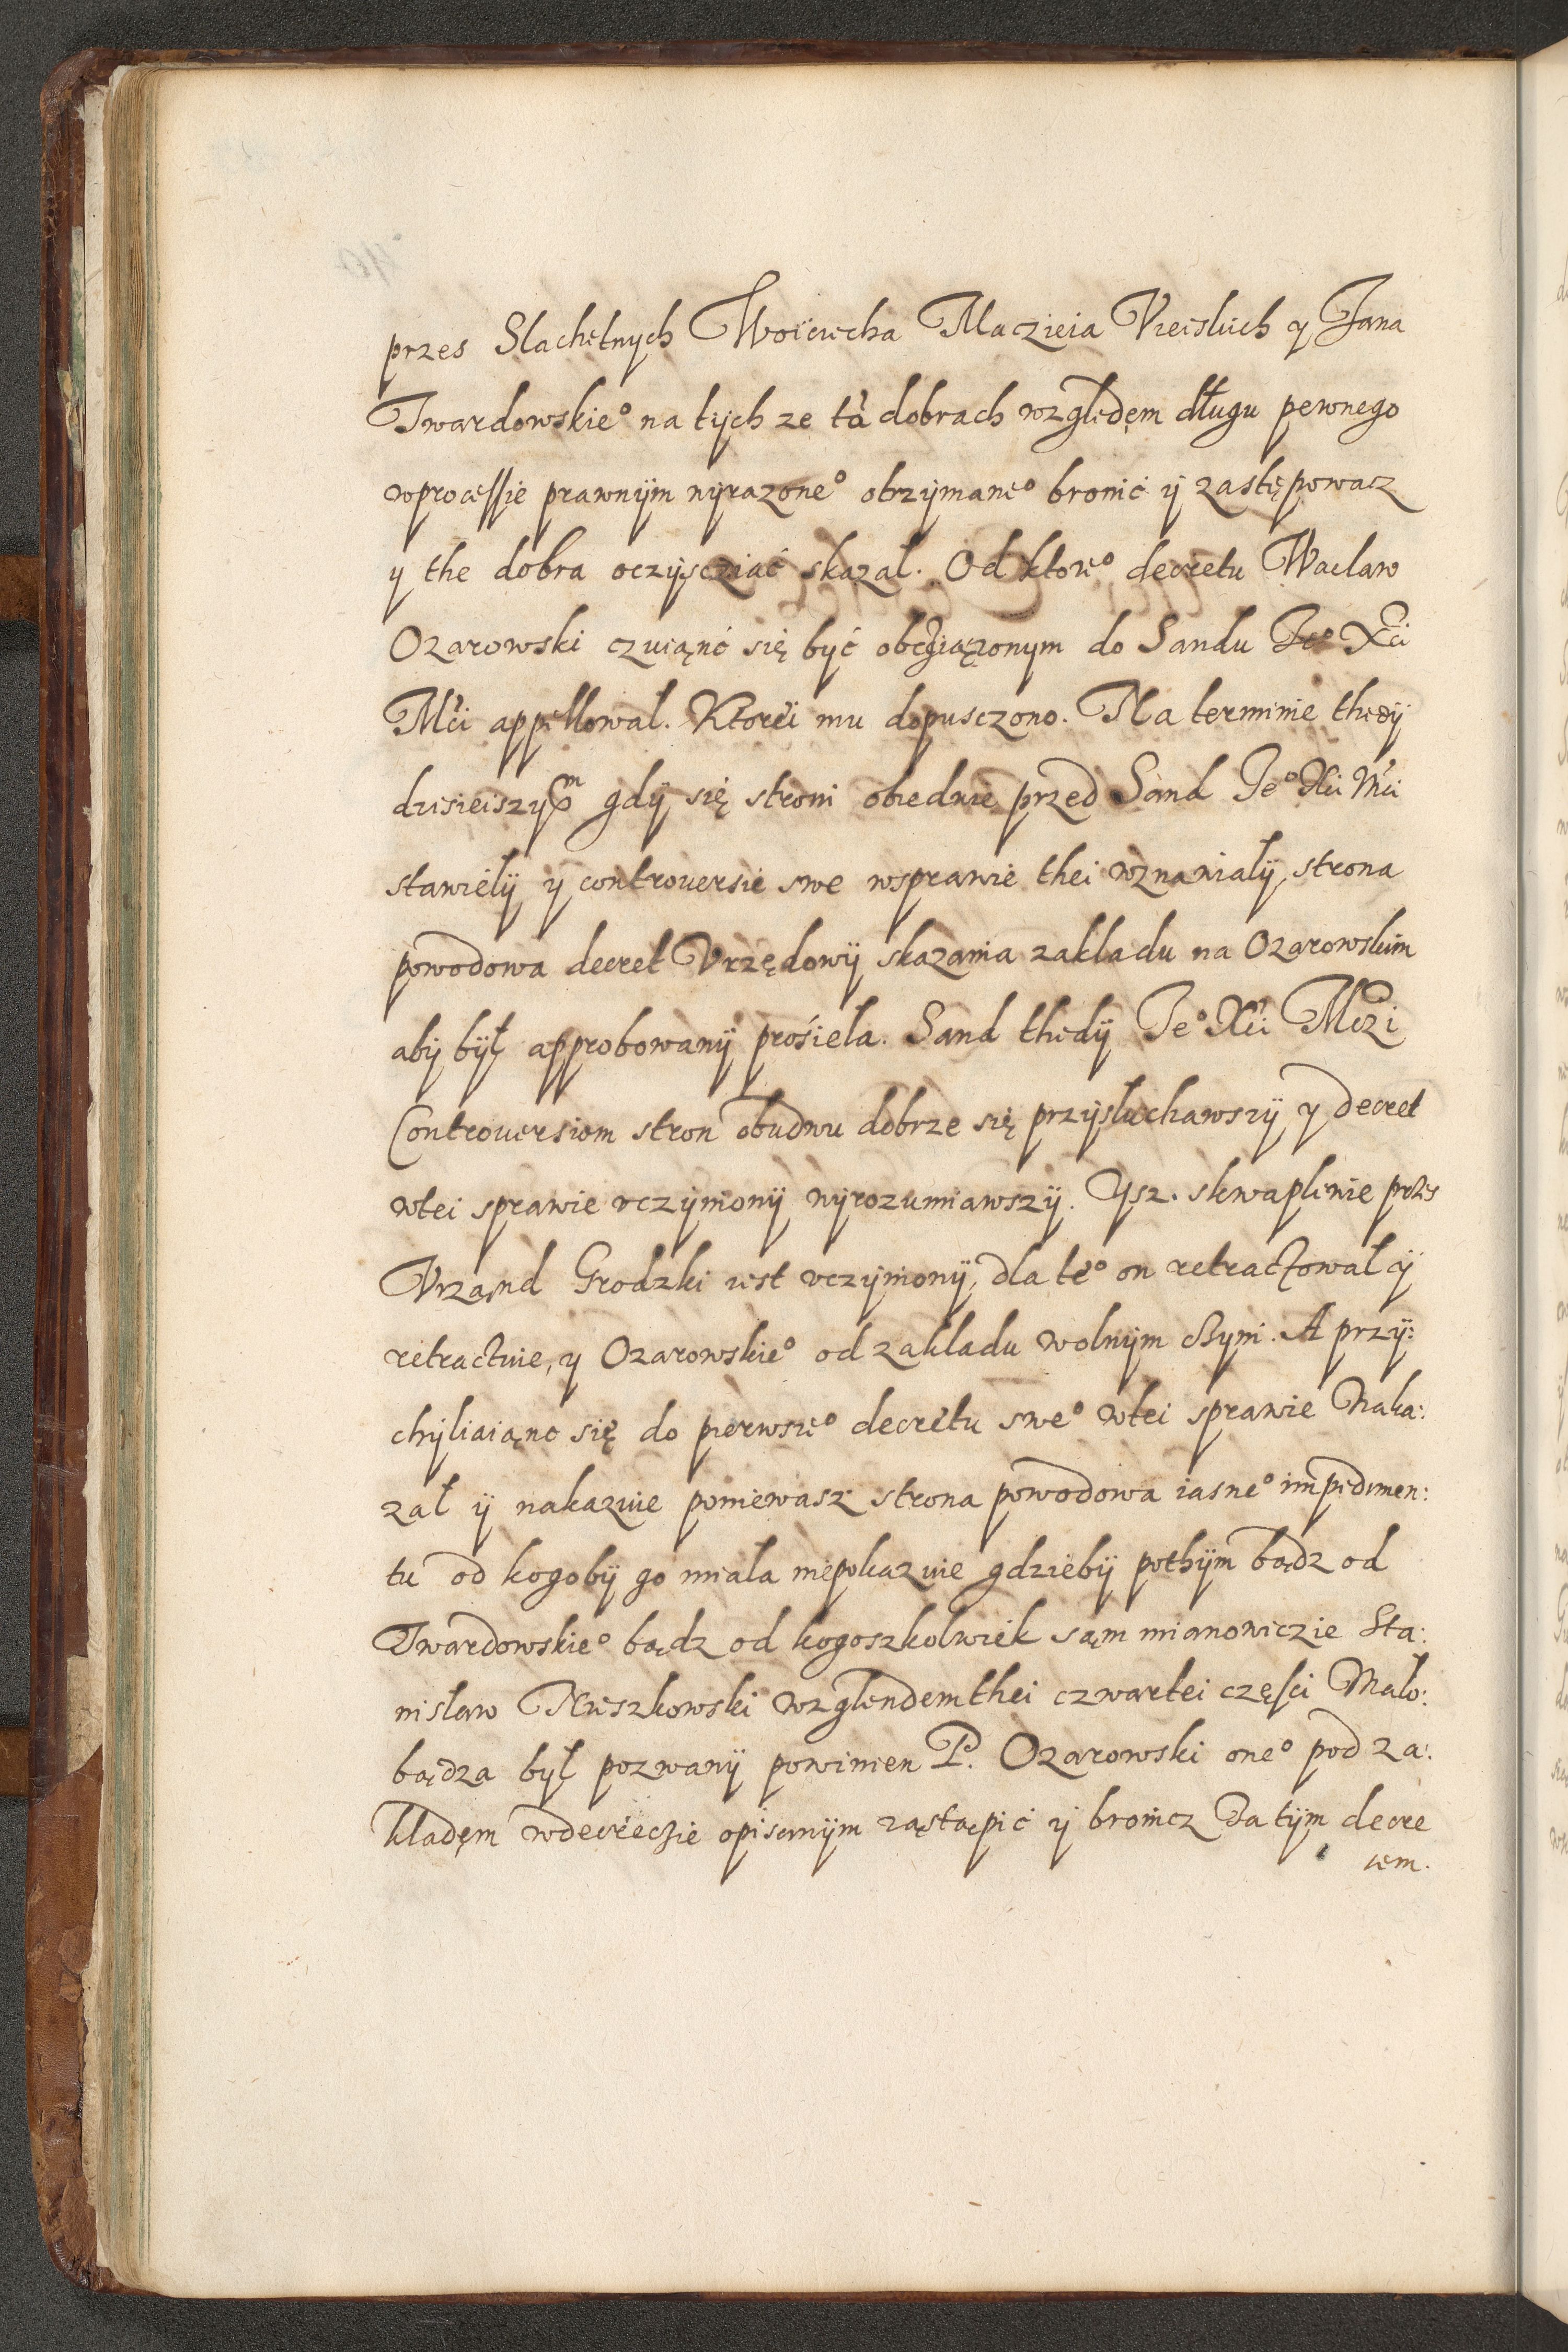 przes Slachetnych Woiciecha Maczieia Vieiskich y Jana
Twardowskie° na tych ze tà dobrach względęm długu pewnego
wprocessie prawnÿm wÿrazone° otrzÿmane° bronić ÿ zastępowacz
y the dobra oczÿscziać skazal. Od ktore° decretu Waclaw
Ozarowski czuiąnć się być obcziązonym do Sandu Je° Xci
Mći appellowal. Ktorei mu dopusczono. Na terminie thedÿ
dzisieiszym gdÿ się stroni obiedwie przed Sand Je° Xci Mći
stawiełÿ y controuersie swe wsprawie thei wznawialÿ, strona
powodowa decret Vrzędowÿ skazania zakladu na Ozarowskim
abÿ bÿł approbowanÿ prośiela. Sand thedÿ Je° Xći Mczi
Controuersiom stron obudwu dobrze się przÿsluchawszÿ y decret
wtei sprawie vczÿnionÿ wÿrozumiawszÿ. Ysz. skwapliwie przes
Vrząnd Grodzki iest vczÿnionÿ, dla te° on retractował ÿ
retractuie, y Ozarowskie° od zakladu wolnÿm czyni. A przÿ:
chÿliaiąnc się do pierwsze° decretu swe° wtei sprawie Naka:
zał ÿ nakazuie poniewasz strona powodowa iasne° impedimen:
tu od kogobÿ go miala niepokazuie gdziebÿ pothÿm bądz od
Twardowskie° bądz od kogoszkolwiek sąm mianowiczie Sta:
nisław Myszkowski wzglendem thei czwartei części Malo:
bądza bÿł pozwanÿ powinien P. Ozarowski one° pod za:
kladęm wdecreczie opisanÿm ząstąpić ÿ brońicz Za tÿm decre
tem.